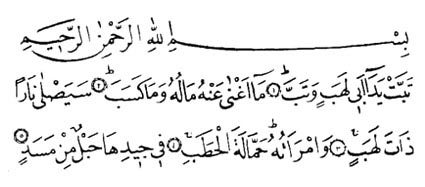 بِسْمِ اللهِ الرَّحْمٰنِ الرَّحِيْمِ
تَبَّتْ يَدَآ اَبِيْ لَهَبٍ وَّتَبَّ ۝۱ مَآ اَغْنٰى عَنْهُ مَالُهٗ وَمَا كَسَبَ ۝۲ سَيَصْلٰى نَارًا
ذَاتَ لَهَبٍ ۝۳ وَّامْرَاَتُهٗ حَمَّالَةَ الْحَطَبِ ۝۴ فِيْ جِيْدِهَا حَبْلٌ مِّنْ مَّسَدٍ ۝۵